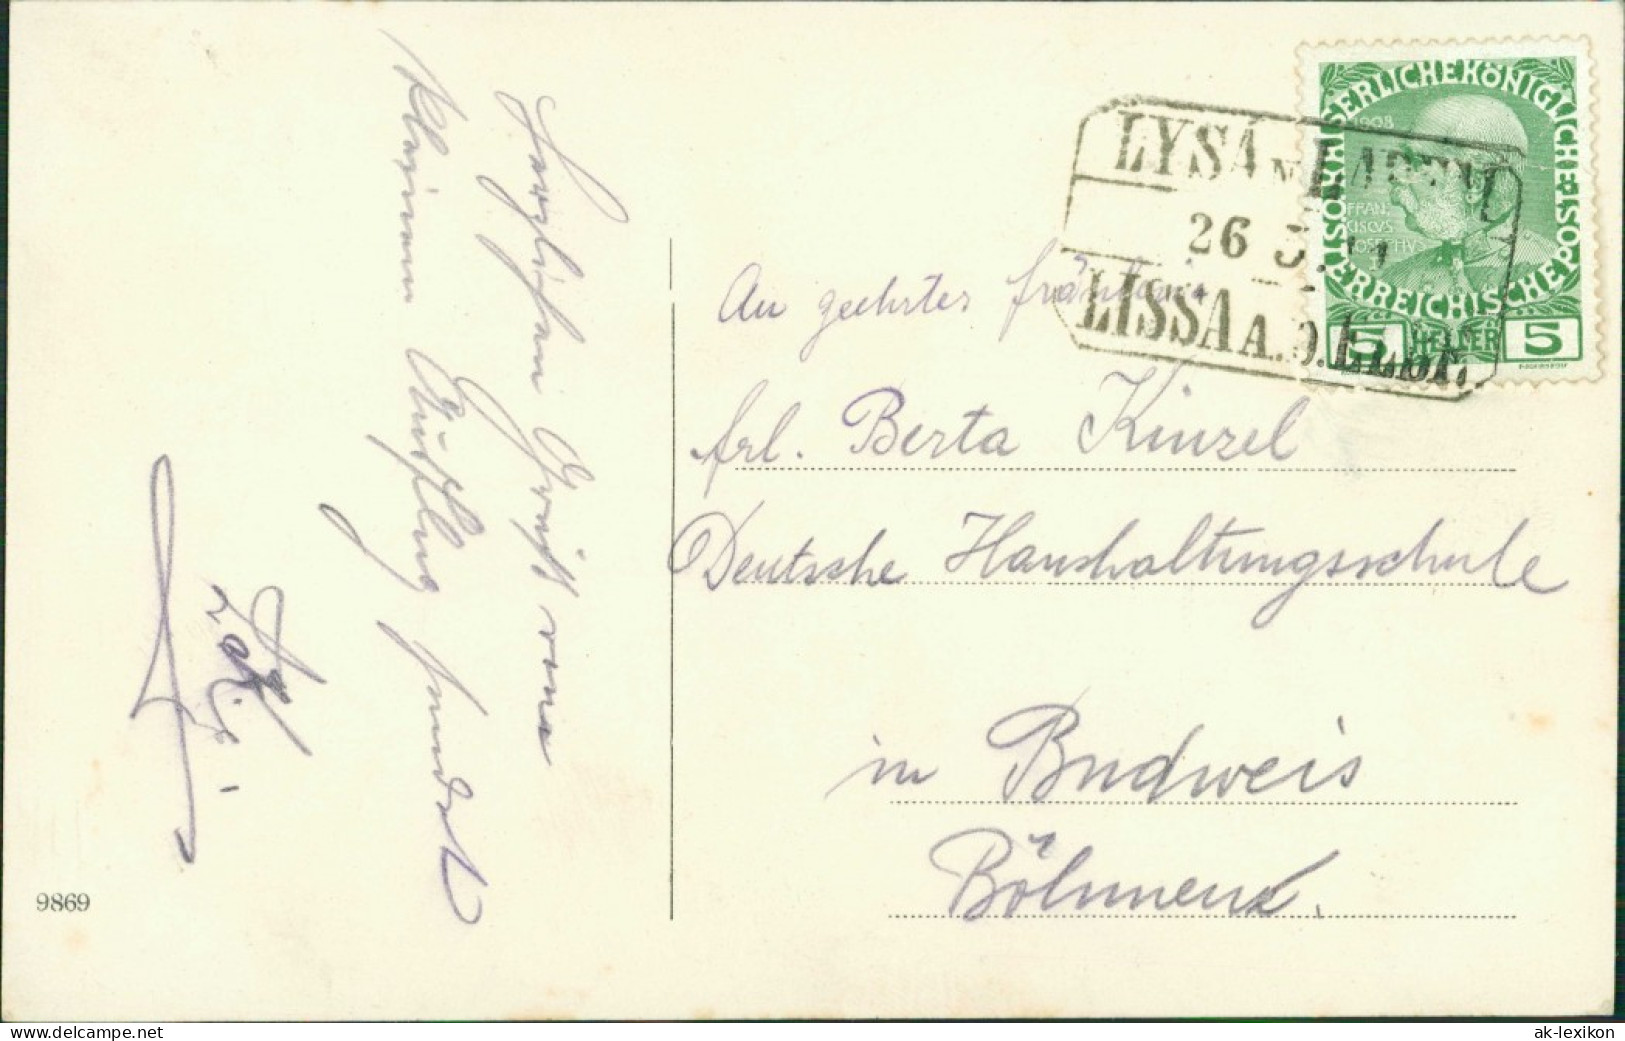 Herzlichen Gruß von
kleinem Ausflug sendet
LYSÁ N LABEM
26
LISSA A. D. ELBE
KAISERLICHE KÖNIGLICHE ÖSTERREICHISCHE POST
1908
FRAN
CISCVS
IOSEPHVS
5 HELLER 5
An geehrtes Fräulein
Frl. Berta Kinzel
Deutsche Haushaltungsschule
in Budweis
Böhmen.
9869
www.delcampe.net
ak-lexikon